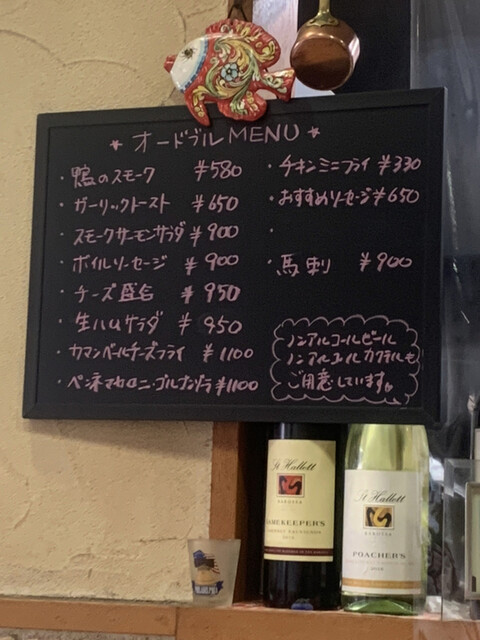 * オードブルMENU *
・鴨のスモーク ¥580
・ガーリックトースト ¥650
・スモークサーモンサラダ ¥900
・ボイルソーセージ ¥900
・チーズ盛合 ¥950
・生ハムサラダ ¥950
・カマンベールチーズフライ ¥1100
・ペンネマカロニ・ゴルゴンゾラ ¥1100
・チキンミニフライ ¥330
・おすすめソーセージ ¥650
・
・馬刺 ¥900
ノンアルコールビール
ノンアルコールカクテルも
ご用意しています。
St Hallett
BAROSSA
GAMEKEEPER'S
St Hallett
BAROSSA
POACHER'S